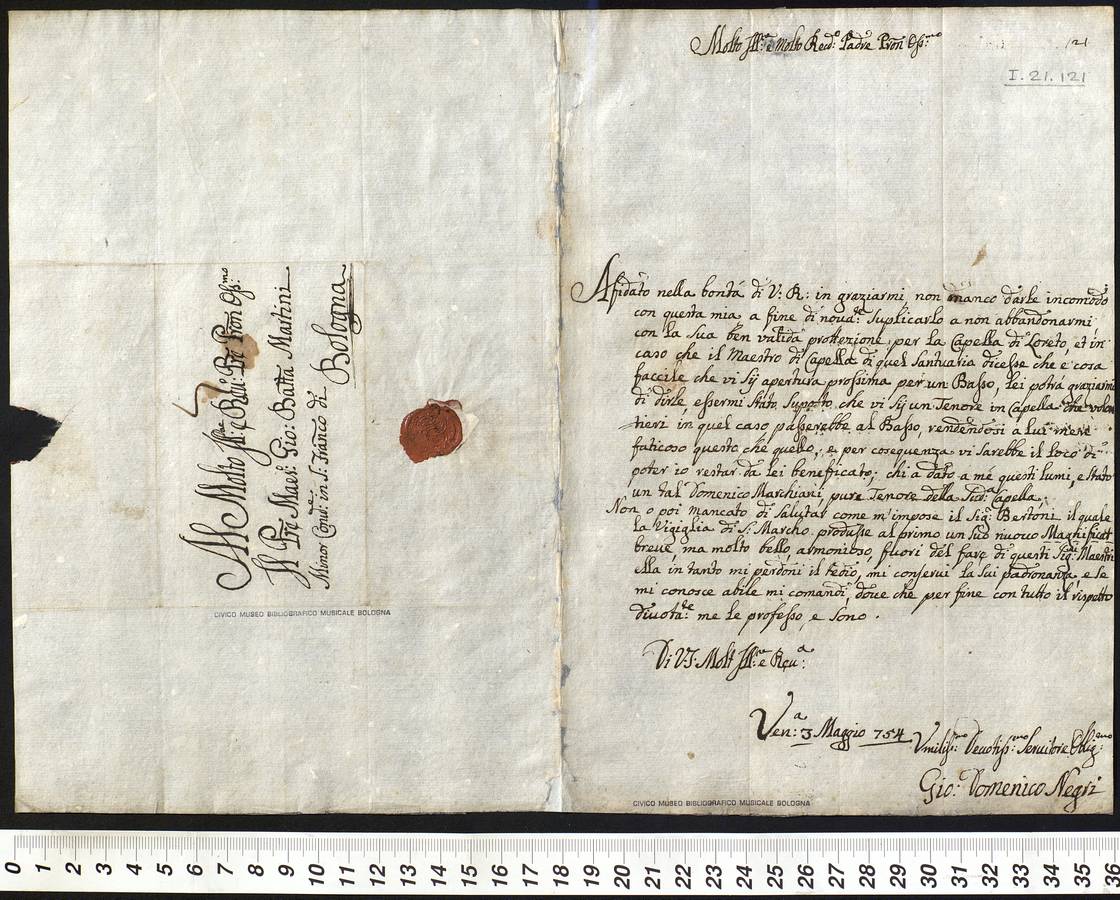 Al Molto Ill:re e Rdu: Prẽ Pron Oss:mo
Il Prẽ Maes: Gio: Batta Martini
Minor Conu:le in S. Franco di
Bologna
CIVICO MUSEO BIBLIOGRAFICO MUSICALE BOLOGNA
Molto Ill:re e Molto Reud:o Padre Pron Oss:mo
121
I. 21. 121
Afidato nella bontà di V: R: in graziarmi non manco darle incomodo
con questa mia a fine di noua:te Suplicarlo a non abbandonarmi
con la Sua ben valida protezione per la Capella di Loreto, et in
caso che il Maestro di Capella di quel Santuario dicesse che e cosa
faccile che vi Sij apertura prossima per un Basso, lei potrà graziarmi
di dirle essermi Stato Suposto che vi Sij un Tenore in Capella che volon
tieri in quel caso passerebbe al Basso, rendendosi a lui mene
faticoso questo che quello, e per coseguenza vi Sarebbe il loco di
poter io restar da lei beneficato; chi a dato a me questi lumi, e Stato
un tal Domenico Marchiani pure Tenore della Sud:a Capella.
Non o poi mancato di Salutar come m'impose il Sig: Bertoni il quale
la Vigiglia di S. Marcho produsse al primo un Suo nuouo Magnificat
breue ma molto bello, armonioso, fuori del fare di questi Sig:ri Maestri
ella in tanto mi perdoni il tedio, mi conserui la Sui padronanza e se
mi conosce abile mi comandi, doue che per fine con tutto il rispetto
diuota:te me le professo, e Sono.
Di V.S. Molt Ill:re e Reu:a
Ven:a 3 Maggio 754
Vmiliss:mo Deuotiss:mo Seruitore Oblig:mo
Gio: Domenico Negri
CIVICO MUSEO BIBLIOGRAFICO MUSICALE BOLOGNA
0 1 2 3 4 5 6 7 8 9 10 11 12 13 14 15 16 17 18 19 20 21 22 23 24 25 26 27 28 29 30 31 32 33 34 35 36